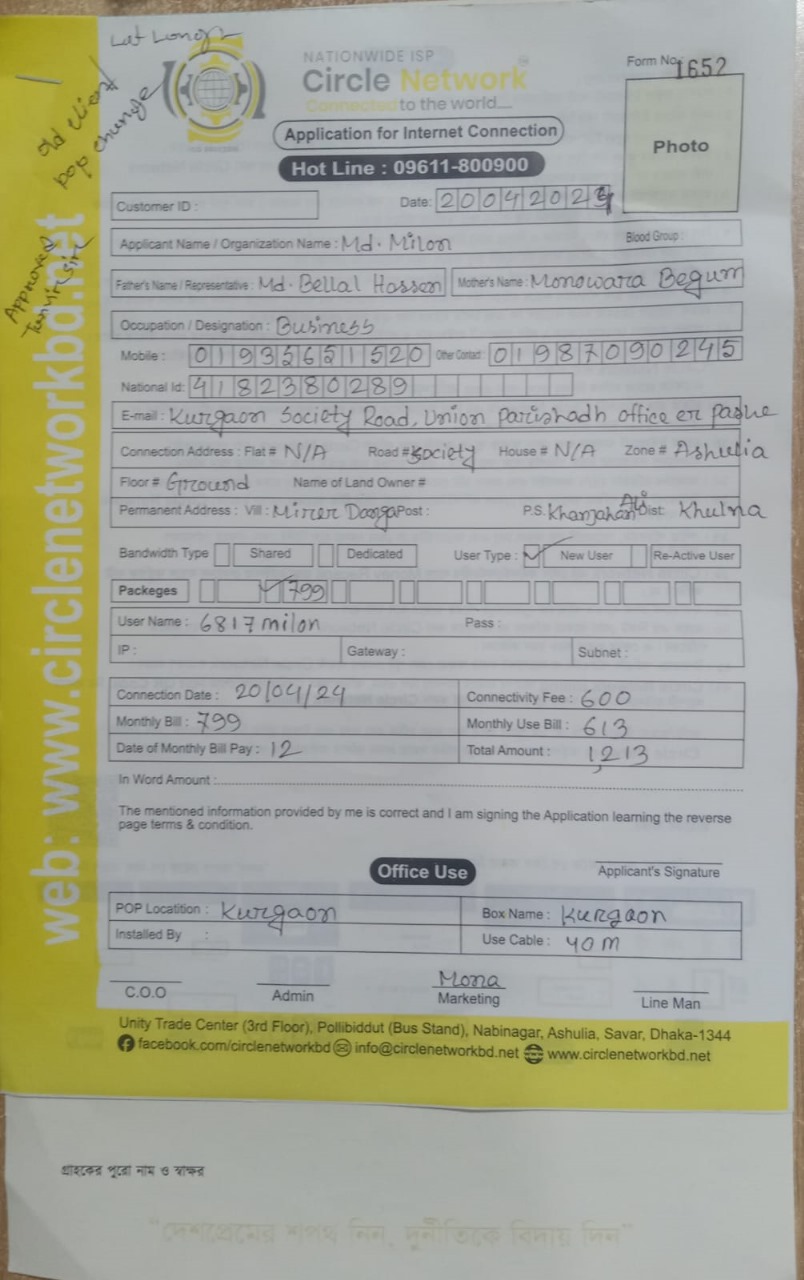 Lat Long
old client
pop change
Approved
Tanvir sir
NATIONWIDE ISP
Circle Network
Connected to the world....
Form No. 1652
Application for Internet Connection
Photo
Hot Line : 09611-800900
Customer ID :
Date: 20042024
Applicant Name / Organization Name : Md. Milon
Blood Group :
Father's Name / Representative : Md. Bellal Hossen
Mother's Name : Monowara Begum
Occupation / Designation : Business
Mobile : 01935651520 Other Contact: 01987090245
National Id: 4182380289
E-mail : Kurgaon Society Road, Union Parishadh office er pashe
Connection Address : Flat # N/A Road # Society House # N/A Zone # Ashulia
Floor # Ground Name of Land Owner #
Permanent Address : Vill : Mirer Danga Post : P.S. Khanjahan Ali Dist: Khulna
Bandwidth Type Shared Dedicated User Type : ✓ New User Re-Active User
Packeges ✓ 799
User Name : 6817milon Pass :
IP : Gateway : Subnet :
Connection Date : 20/04/24 Connectivity Fee : 600
Monthly Bill : 799 Monthly Use Bill : 613
Date of Monthly Bill Pay : 12 Total Amount : 1,213
In Word Amount :
The mentioned information provided by me is correct and I am signing the Application learning the reverse
page terms & condition.
Office Use
Applicant's Signature
POP Locatition : Kurgaon Box Name : Kurgaon
Installed By : Use Cable : 40 M
C.O.O
Admin
Mona
Marketing
Line Man
Unity Trade Center (3rd Floor), Pollibiddut (Bus Stand), Nabinagar, Ashulia, Savar, Dhaka-1344
facebook.com/circlenetworkbd info@circlenetworkbd.net www.circlenetworkbd.net
web: www.circlenetworkbd.net
গ্রাহকের পুরো নাম ও স্বাক্ষর
"দেশপ্রেমের শপথ নিন, দুর্নীতিকে বিদায় দিন"